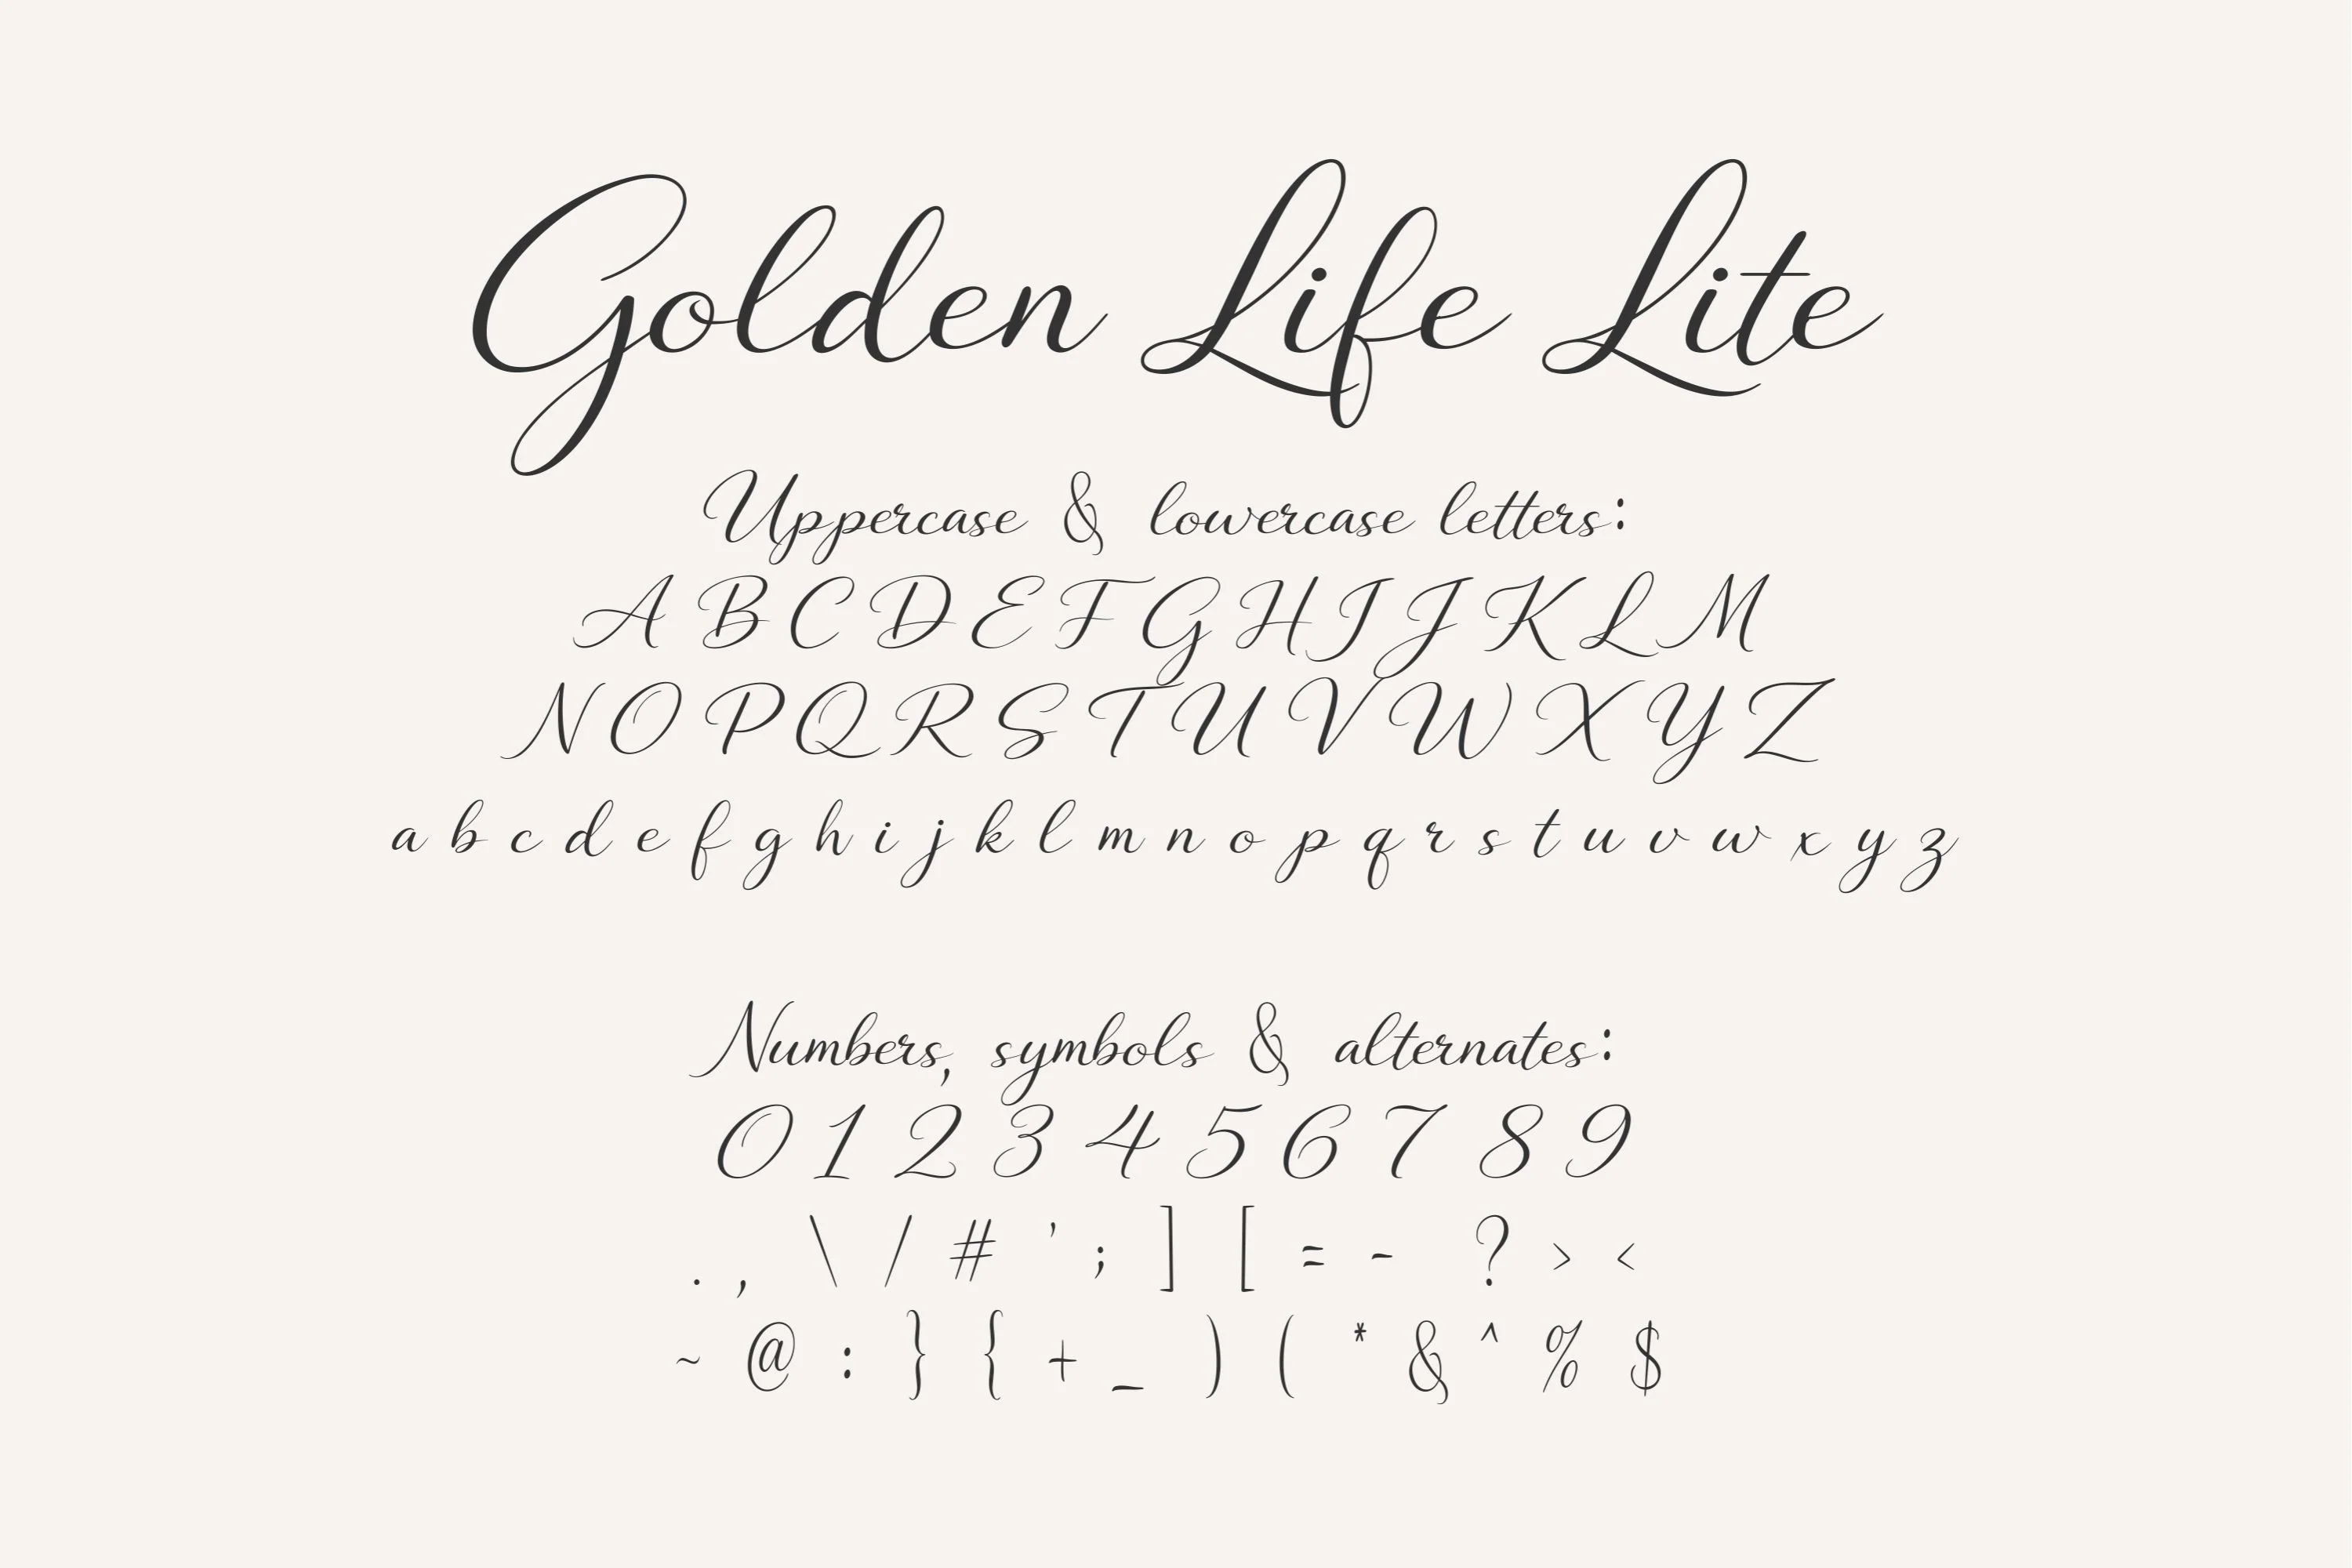 Golden Life Lite
Uppercase & lowercase letters:
A B C D E F G H I J K L M
N O P Q R S T U V W X Y Z
a b c d e f g h i j k l m n o p q r s t u v w x y z
Numbers, symbols & alternates:
0 1 2 3 4 5 6 7 8 9
. , \ / # ' ; ] [ = - ? > <
~ @ : } { + _ ) ( * & ^ % $